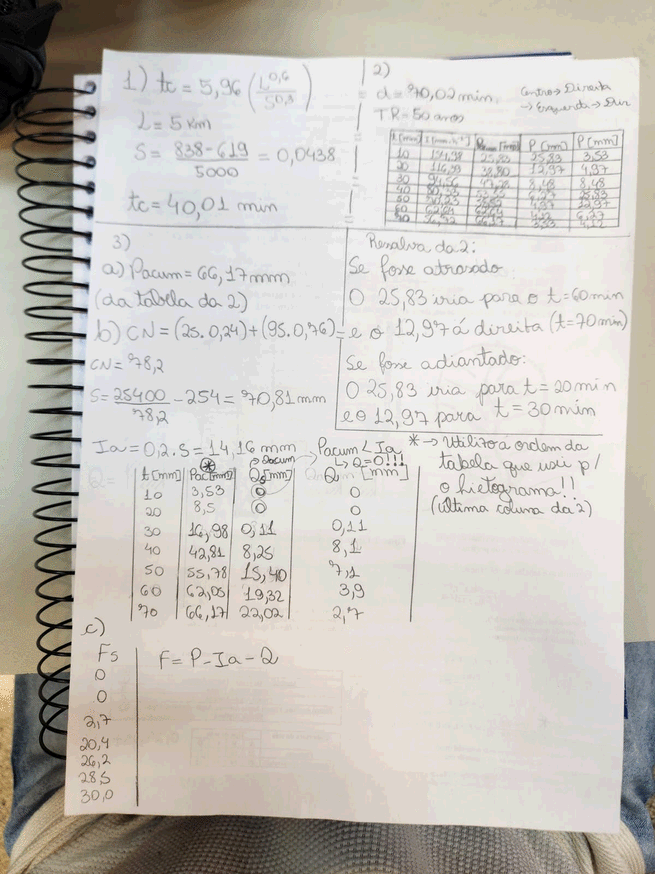 1) tc = 5,96 (L^0,6 / S^0,3)
L = 5 km
S = 838-619 / 5000 = 0,0438
tc = 40,01 min
2)
d = 70,02 min
TR = 50 anos
Centro → Direita
→ Esquerda → Dir
t [min] I [mm.h-1] Pacum [mm] P [mm] P [mm]
10 25,83 25,83 3,53
20 12,97 4,97
30 8,48 8,48
40 25,83
50 4,97 12,97
60 6,27
3)
a) Pacum = 66,17 mm
(da tabela da 2)
b) CN = (25.0,24)+(95.0,76) =
CN = 78,2
S = 25400 / 78,2 - 254 = 70,81 mm
Ia = 0,2.S = 14,16 mm
Pacum < Ia
↳ Q=0!!!
→ Qacum
t [mm] Pac [mm] Qs [mm] Q [mm]
10 3,53 0 0
20 8,5 0 0
30 16,98 0,11 0,11
40 42,81 8,25 8,1
50 55,78 15,40 7,1
60 62,05 19,32 3,9
70 66,17 22,02 2,7
Resalva da 2:
Se fosse atrasado:
O 25,83 iria para o t = 60 min
e o 12,97 á direita (t = 70 min)
Se fosse adiantado:
O 25,83 iria para t = 20 min
e o 12,97 para t = 30 min
* → Utilizo á ordem da
tabela que usei p/
o hietograma!!
(última coluna da 2)
c)
Fs
F = P - Ia - Q
0
0
2,7
20,4
26,2
28,5
30,0